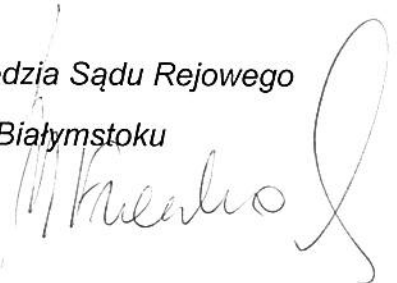 ędzia Sądu Rejowego
Białymstoku